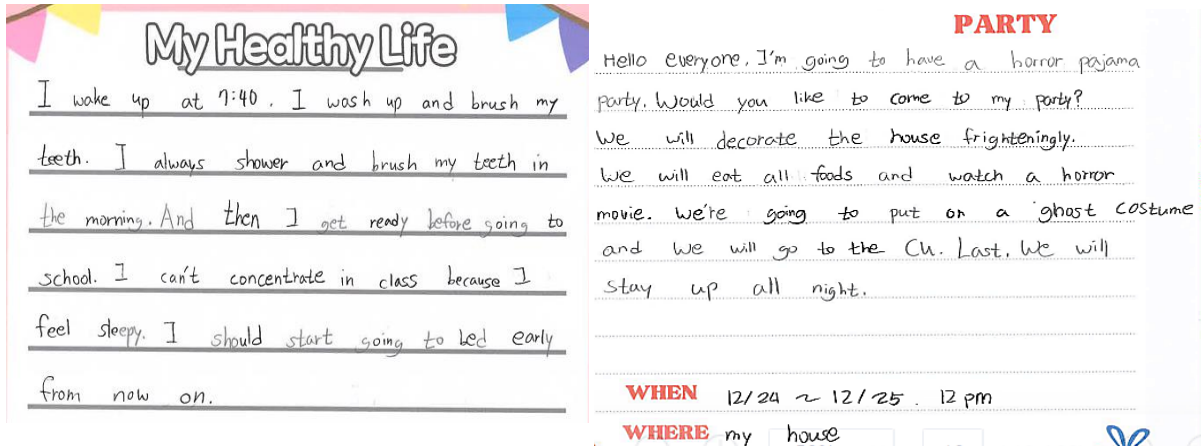 My Healthy Life
I wake up at 7:40. I wash up and brush my
teeth. I always shower and brush my teeth in
the morning. And then I get ready before going to
school. I can't concentrate in class because I
feel sleepy. I should start going to bed early
from now on.
PARTY
Hello everyone, I'm going to have a horror pajama
party. Would you like to come to my party?
We will decorate the house frighteningly.
We will eat all foods and watch a horror
movie. We're going to put on a ghost costume
and we will go to the CU. Last, We will
stay up all night.
WHEN 12/24 ~ 12/25. 12 pm
WHERE my house